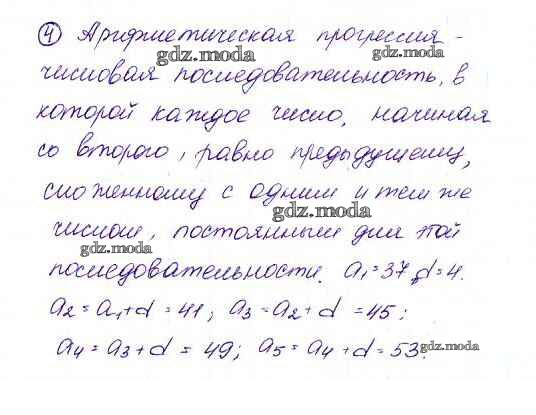 ④ Арифметическая прогрессия -
gdz.moda gdz.moda
числовая последовательность, в
которой каждое число, начиная
со второго, равно предыдущему,
сложенному с одним и тем же
gdz.moda
числом, постоянным для этой
gdz.moda
последовательности. a₁=37, d=4.
a₂=a₁+d=41; a₃=a₂+d=45;
a₄=a₃+d=49; a₅=a₄+d=53.
gdz.moda